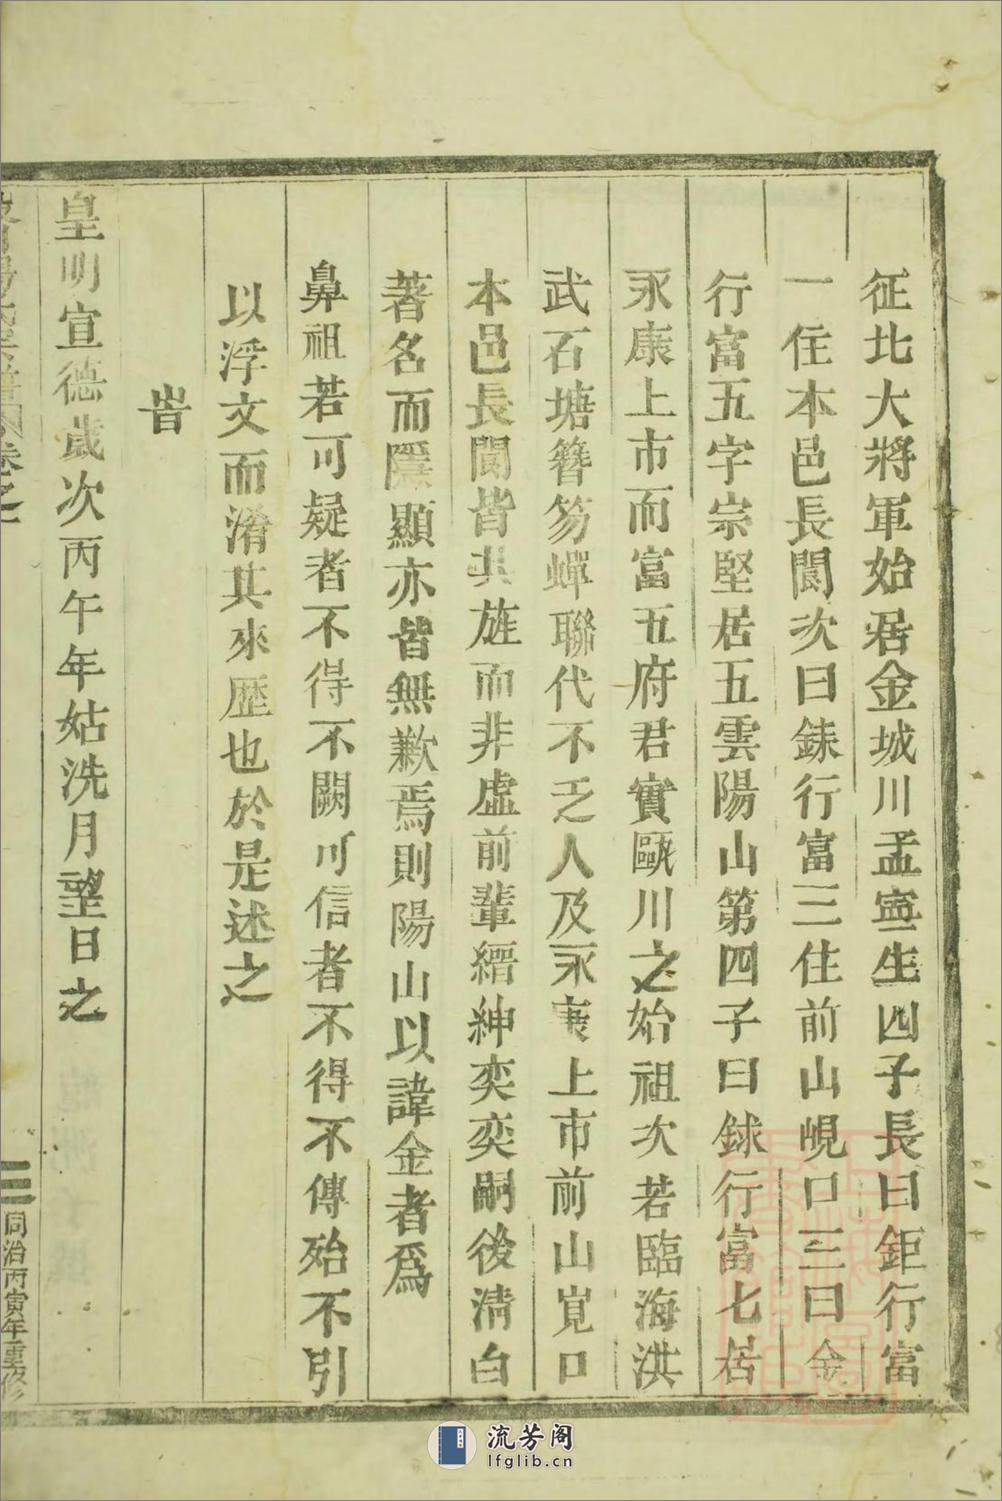 征北大將軍始居金城川孟寍生四子長曰鉅行富
一住本邑長閬次曰銇行富三住前山峴口三曰金
行富五字宗堅居五雲陽山第四子曰銶行富七居
永康上市而富五府君實甌川之始祖次若臨海洪
武石塘簪笏蟬聯代不乏人及永康上市前山寛口
本邑長閬皆共族而非虛前輩縉紳奕奕嗣後清白
著名而隱顯亦皆無歉焉則陽山以諱金者爲
鼻祖若可疑者不得不闕可信者不得不傳殆不引
以浮文而淆其來歴也於是述之
旹
皇明宣德歲次丙午年姑洗月望日之
卷之一
三
同治丙寅年重修
流芳阁
lfglib.cn